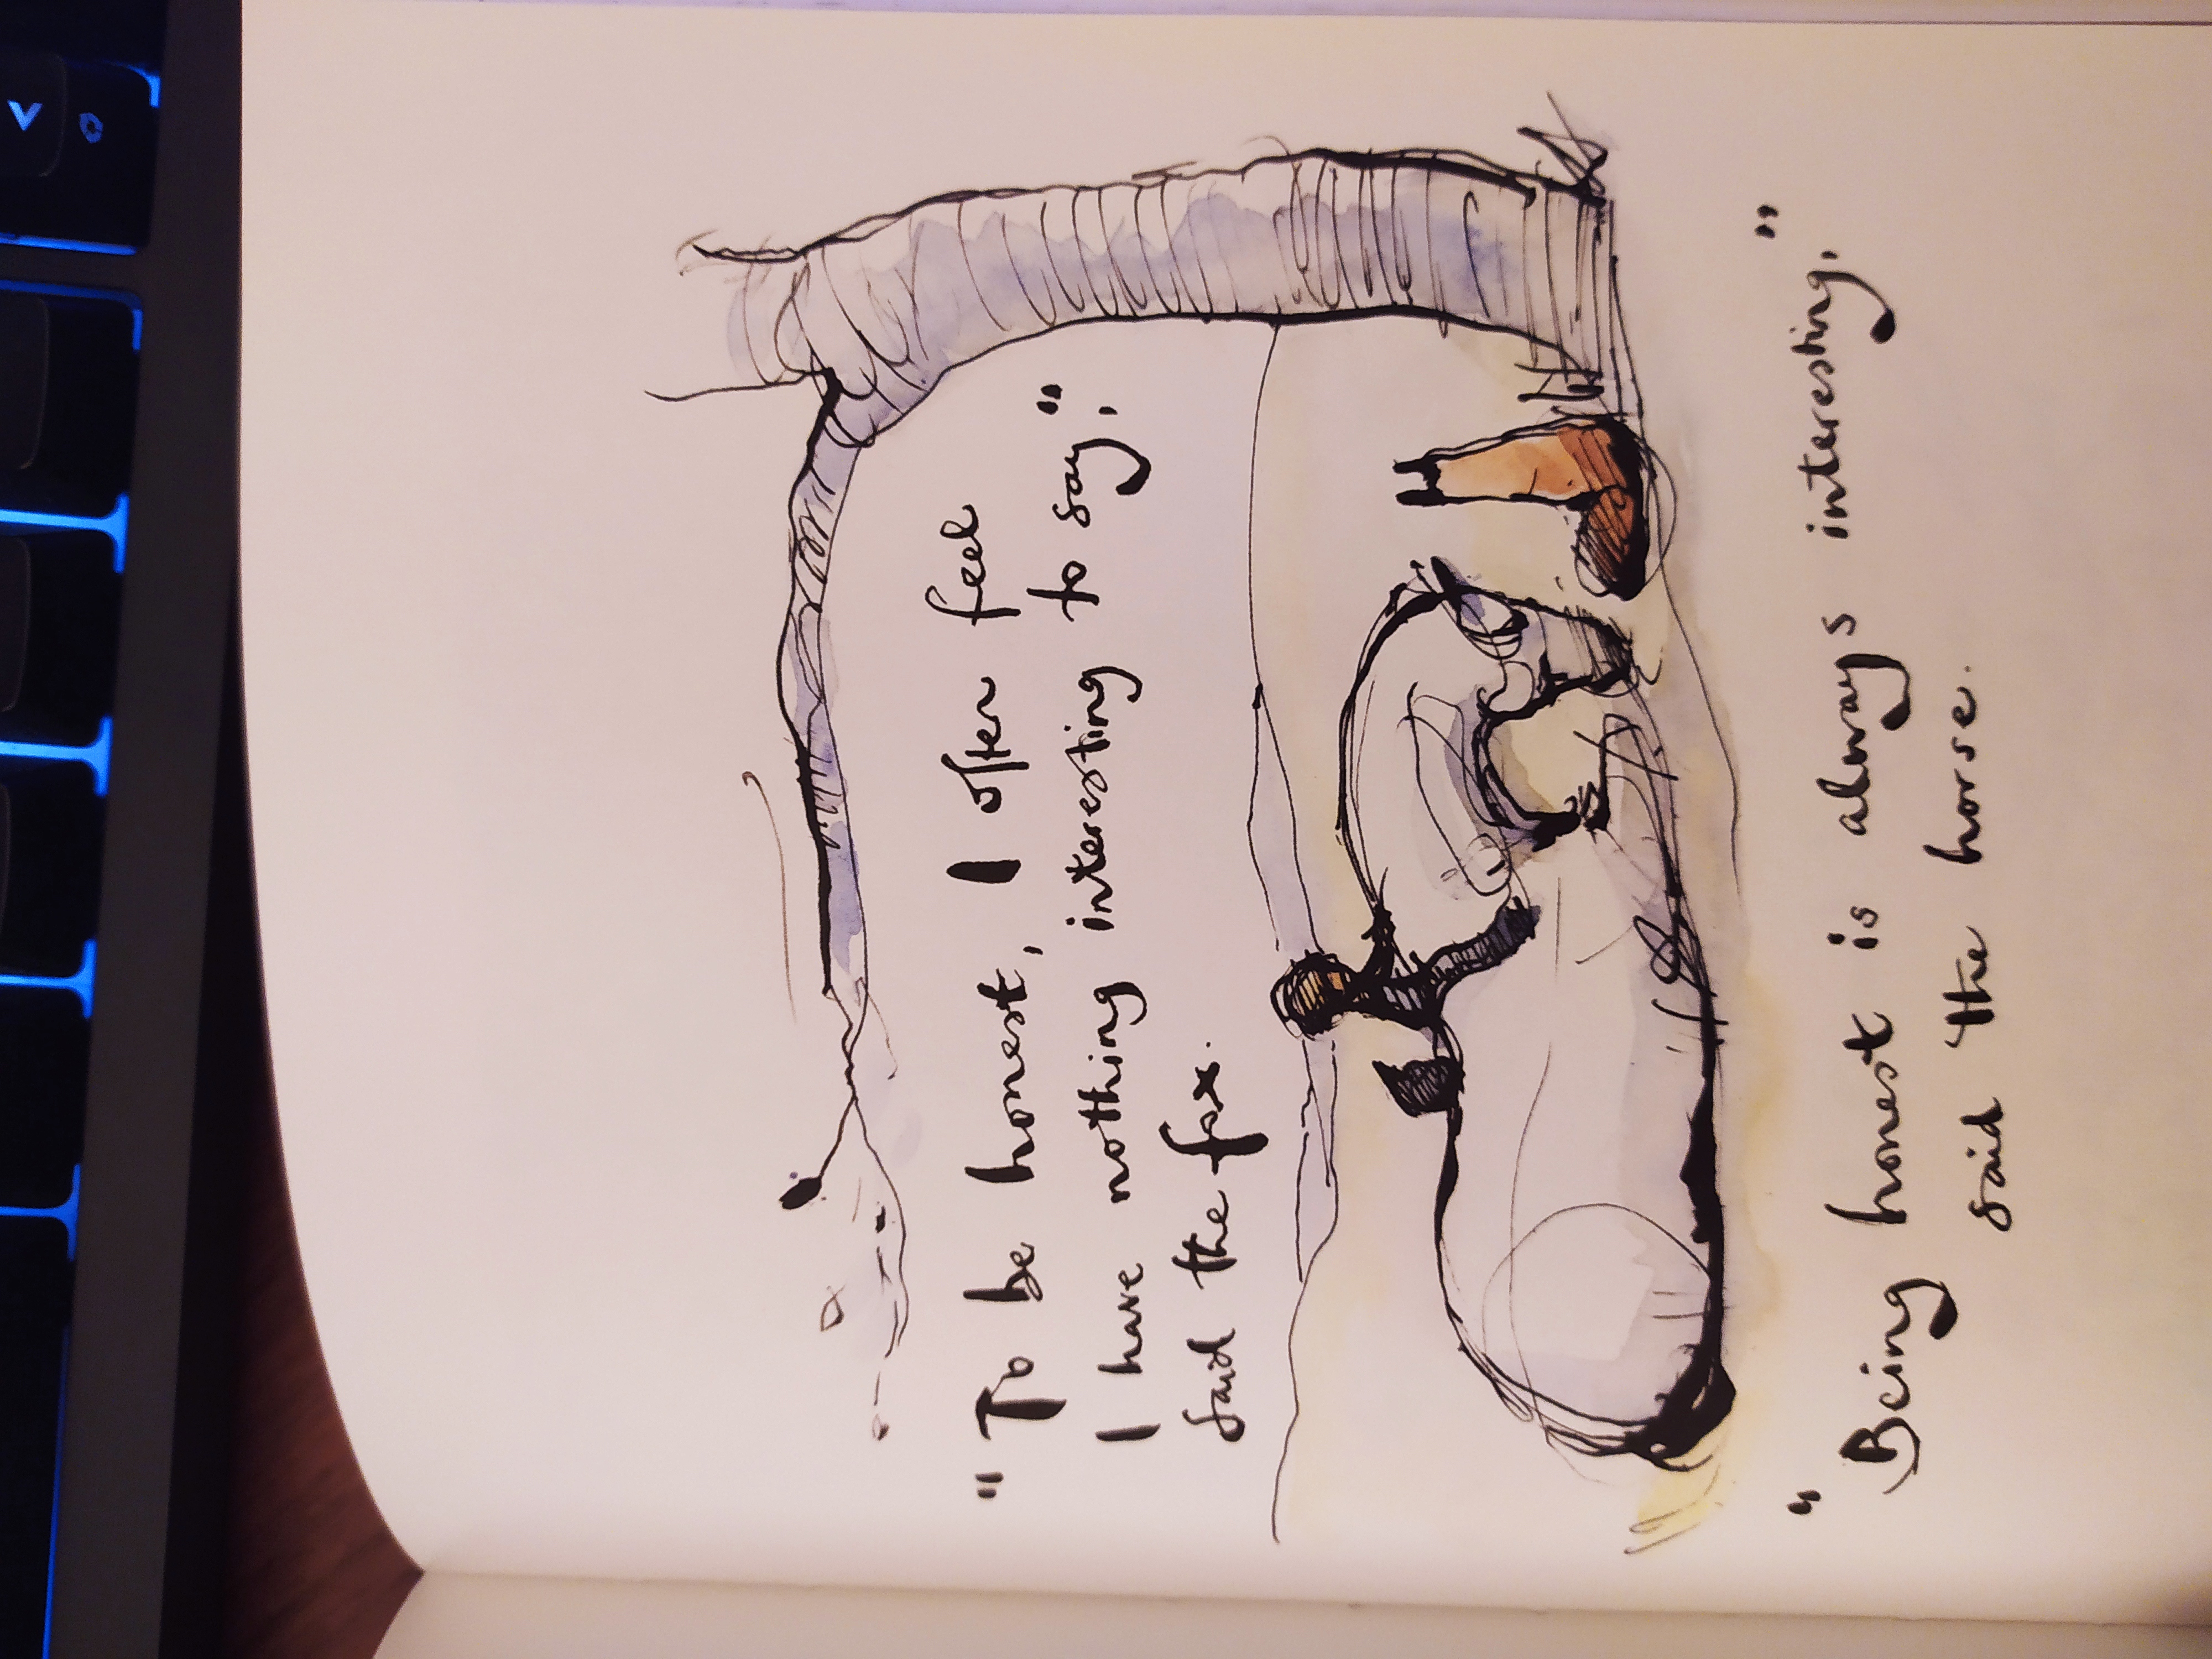 "To be honest, I often feel
I have nothing interesting to say,"
said the fox.
"Being honest is always interesting,"
said the horse.